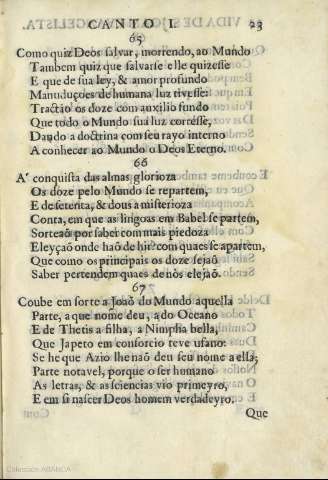 CANTO I. 23
65
Como quiz Deos salvar, morrendo, ao Mundo
Tambem quiz que salvarse elle quizesse
E que de sua ley, & amor profundo
Manuduçoes de humana luz tivesse:
Tractão os doze com auxilio fundo
Que todo o Mundo sua luz corresse,
Dando a doctrina com seu rayo interno
A conhecer ao Mundo o Deos Eterno.
66
A' conquista das almas glorioza
Os doze pelo Mundo se repartem,
E de setenta, & dous a misterioza
Conta, em que as lingoas em Babel se partem,
Sorteaõ por saber com mais piedoza
Eleyçaõ onde haõ de hir? com quaes se apartem,
Que como os principais os doze sejaõ
Saber pertendem quaes de nòs elejaõ.
67
Coube em sorte a Joaõ do Mundo aquella
Parte, a que nome deu, a do Oceano
E de Thetis a filha, a Nimpha bella,
Que Japeto em consorcio teve ufano:
Se he que Azio lhe naõ deu seu nome a ella;
Parte notavel, porque o ser humano
As letras, & as sciencias vio primeyro,
E em si nascer Deos homem verdadeyro.
Que
Colección ABANCA